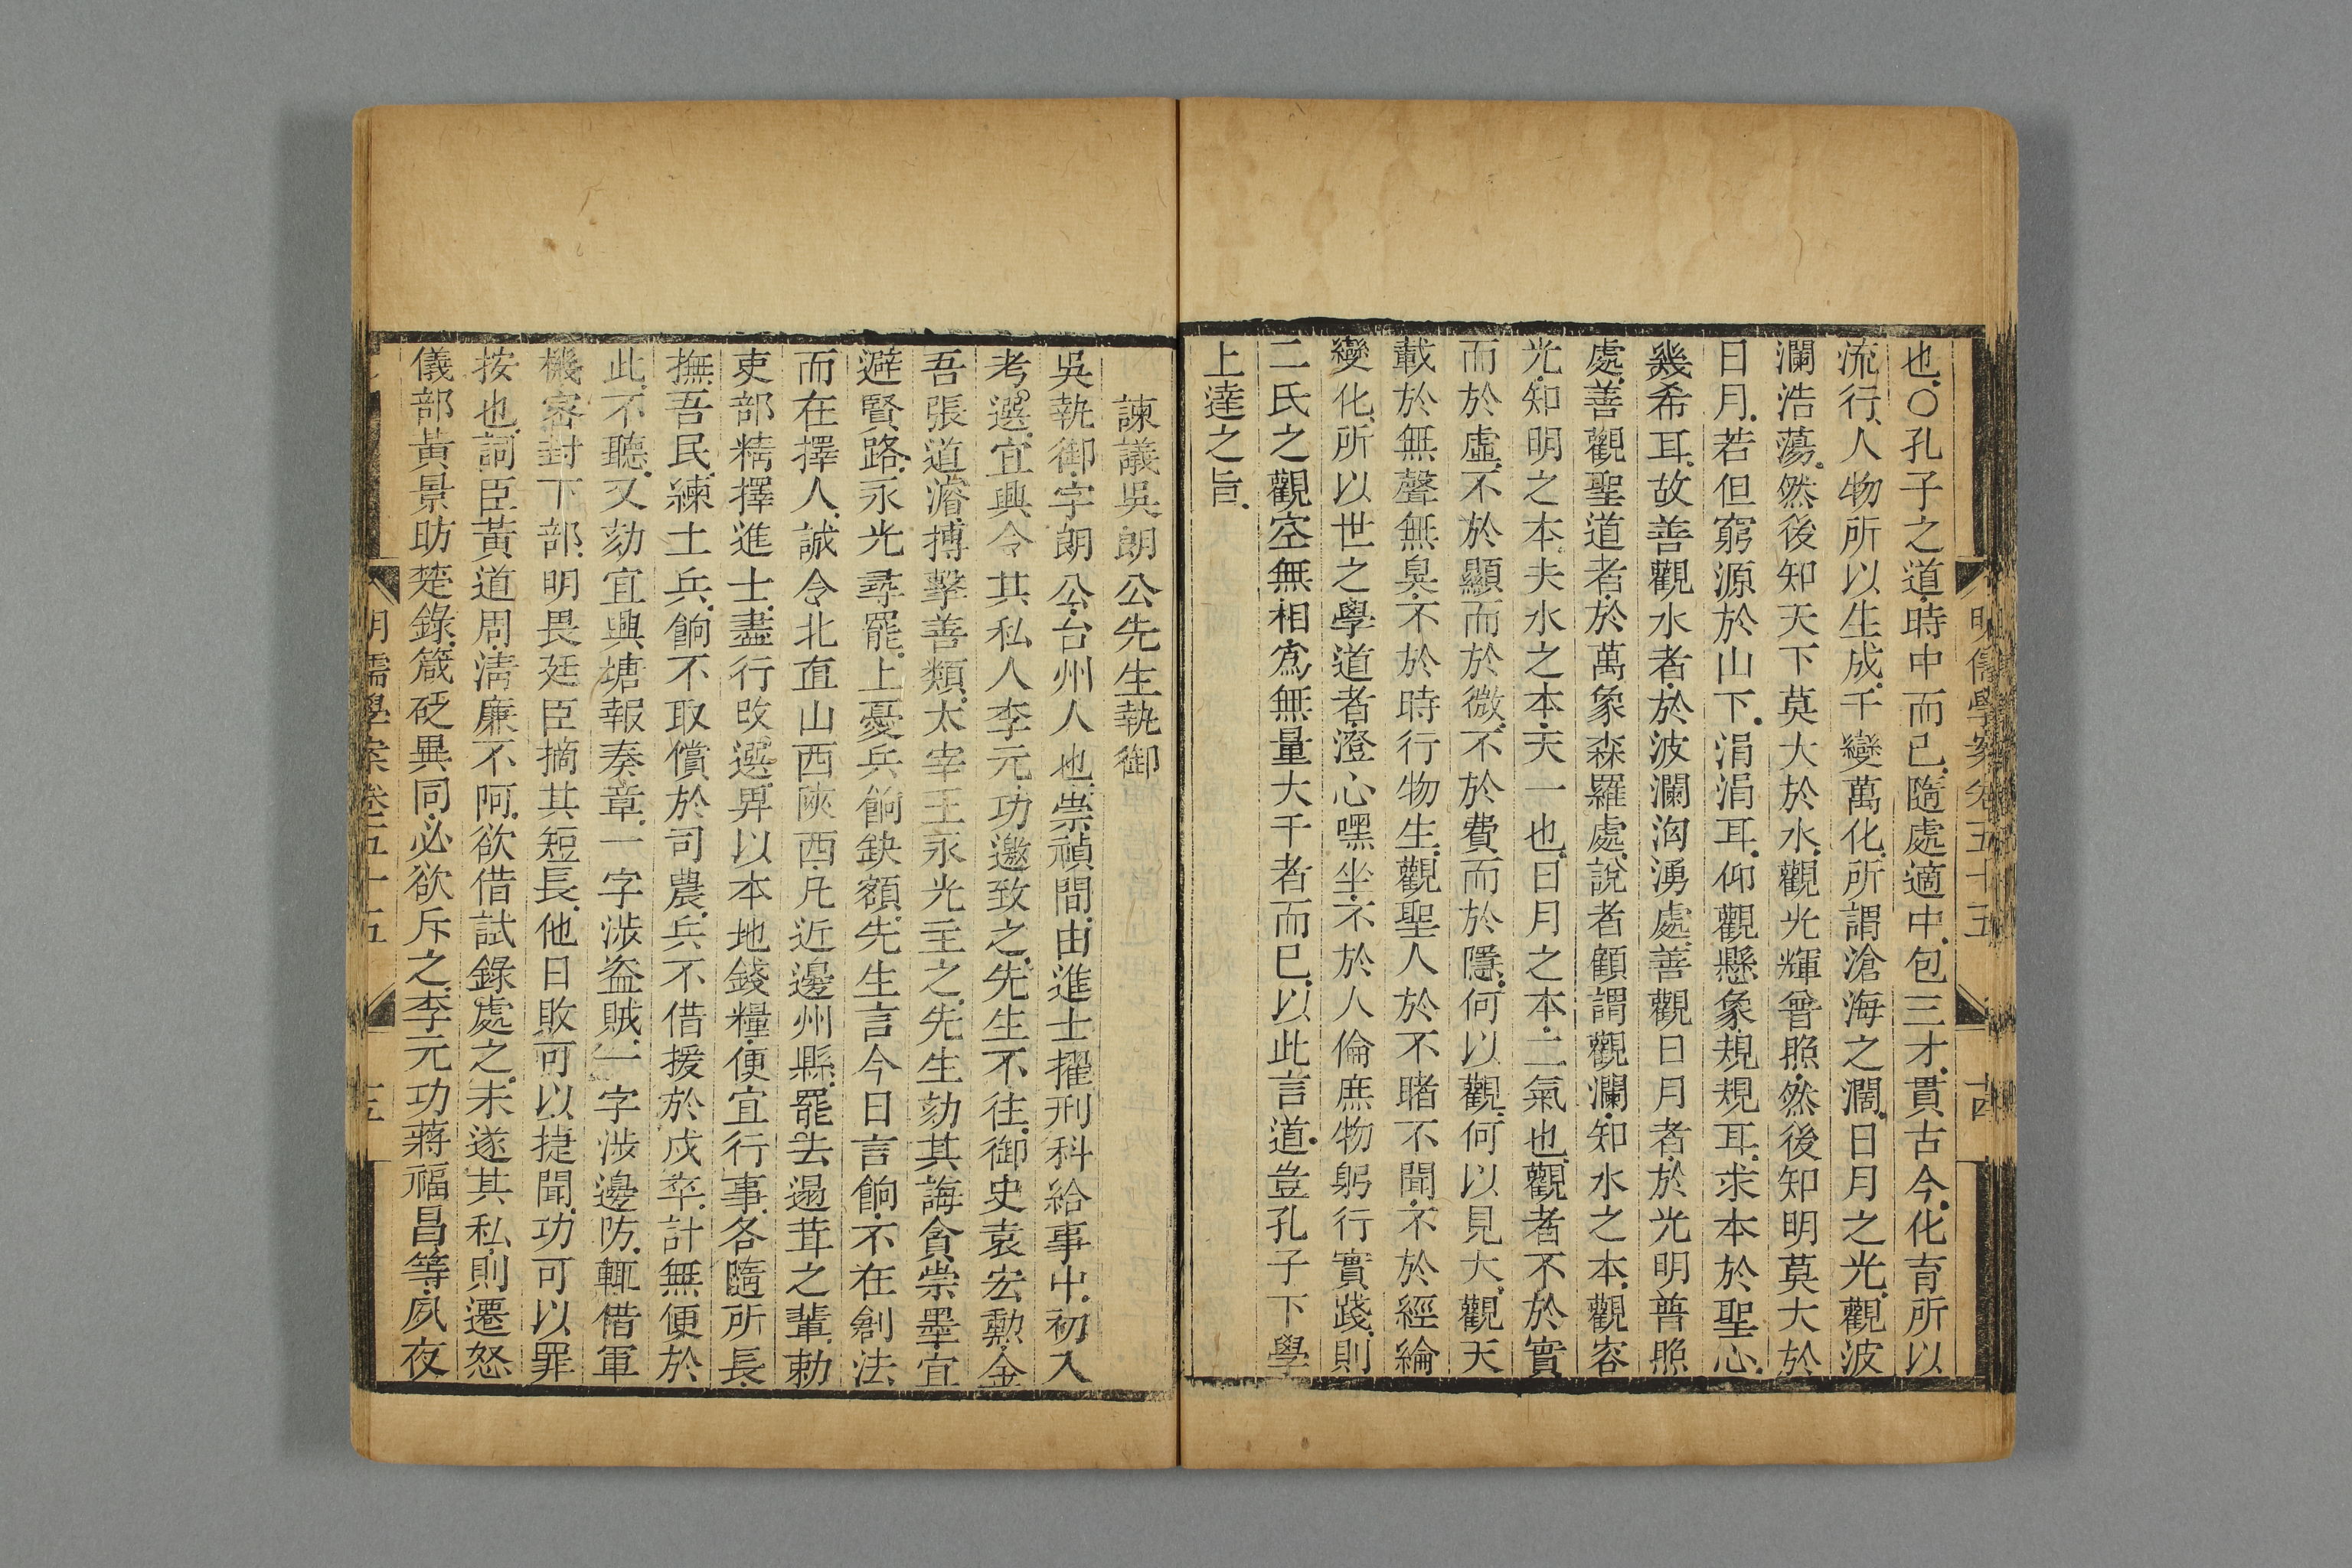 明儒學案卷五十五
十四
也○孔子之道時中而已隨處適中包三才貫古今化育所以
流行人物所以生成千變萬化所謂滄海之濶日月之光觀波
瀾浩蕩然後知天下莫大於水觀光輝曾照然後知明莫大於
日月若但窮源於山下涓涓耳仰觀懸象規規耳求本於聖心
幾希耳故善觀水者於波瀾洶湧處善觀日月者於光明普照
處善觀聖道者於萬象森羅處說者顧謂觀瀾知水之本觀容
光知明之本夫水之本天一也日月之本二氣也觀者不於實
而於虛不於顯而於微不於費而於隱何以觀何以見大觀天
載於無聲無臭不於時行物生觀聖人於不睹不聞不於經綸
變化所以世之學道者澄心嘿坐不於人倫庶物躬行實踐則
二氏之觀空無相爲無量大千者而已以此言道豈孔子下學
上達之旨
諫議吳朗公先生執御
吳執御字朗公台州人也崇禎間由進士擢刑科給事中初入
考選宜興令其私人李元功邀致之先生不往御史袁宏勳金
吾張道濬搏擊善類太宰王永光主之先生劾其誨貪崇墨宜
避賢路永光尋罷上憂兵餉缺額先生言今日言餉不在創法
而在擇人誠令北直山西陝西凡近邊州縣罷去邊茸之輩勅
吏部精擇進士盡行改選畀以本地錢糧便宜行事各隨所長
撫吾民練土兵餉不取償於司農兵不借援於戍卒計無便於
此不聽又劾宜興塘報奏章一字涉盜賊一字涉邊防輒借軍
機密封下部明畏廷臣摘其短長他日敗可以捷聞功可以罪
按也詞臣黃道周清廉不阿欲借試錄處之未遂其私則遷怒
儀部黃景昉楚錄箴砭異同必欲斥之李元功蔣福昌等夙夜
明儒學案卷五十五